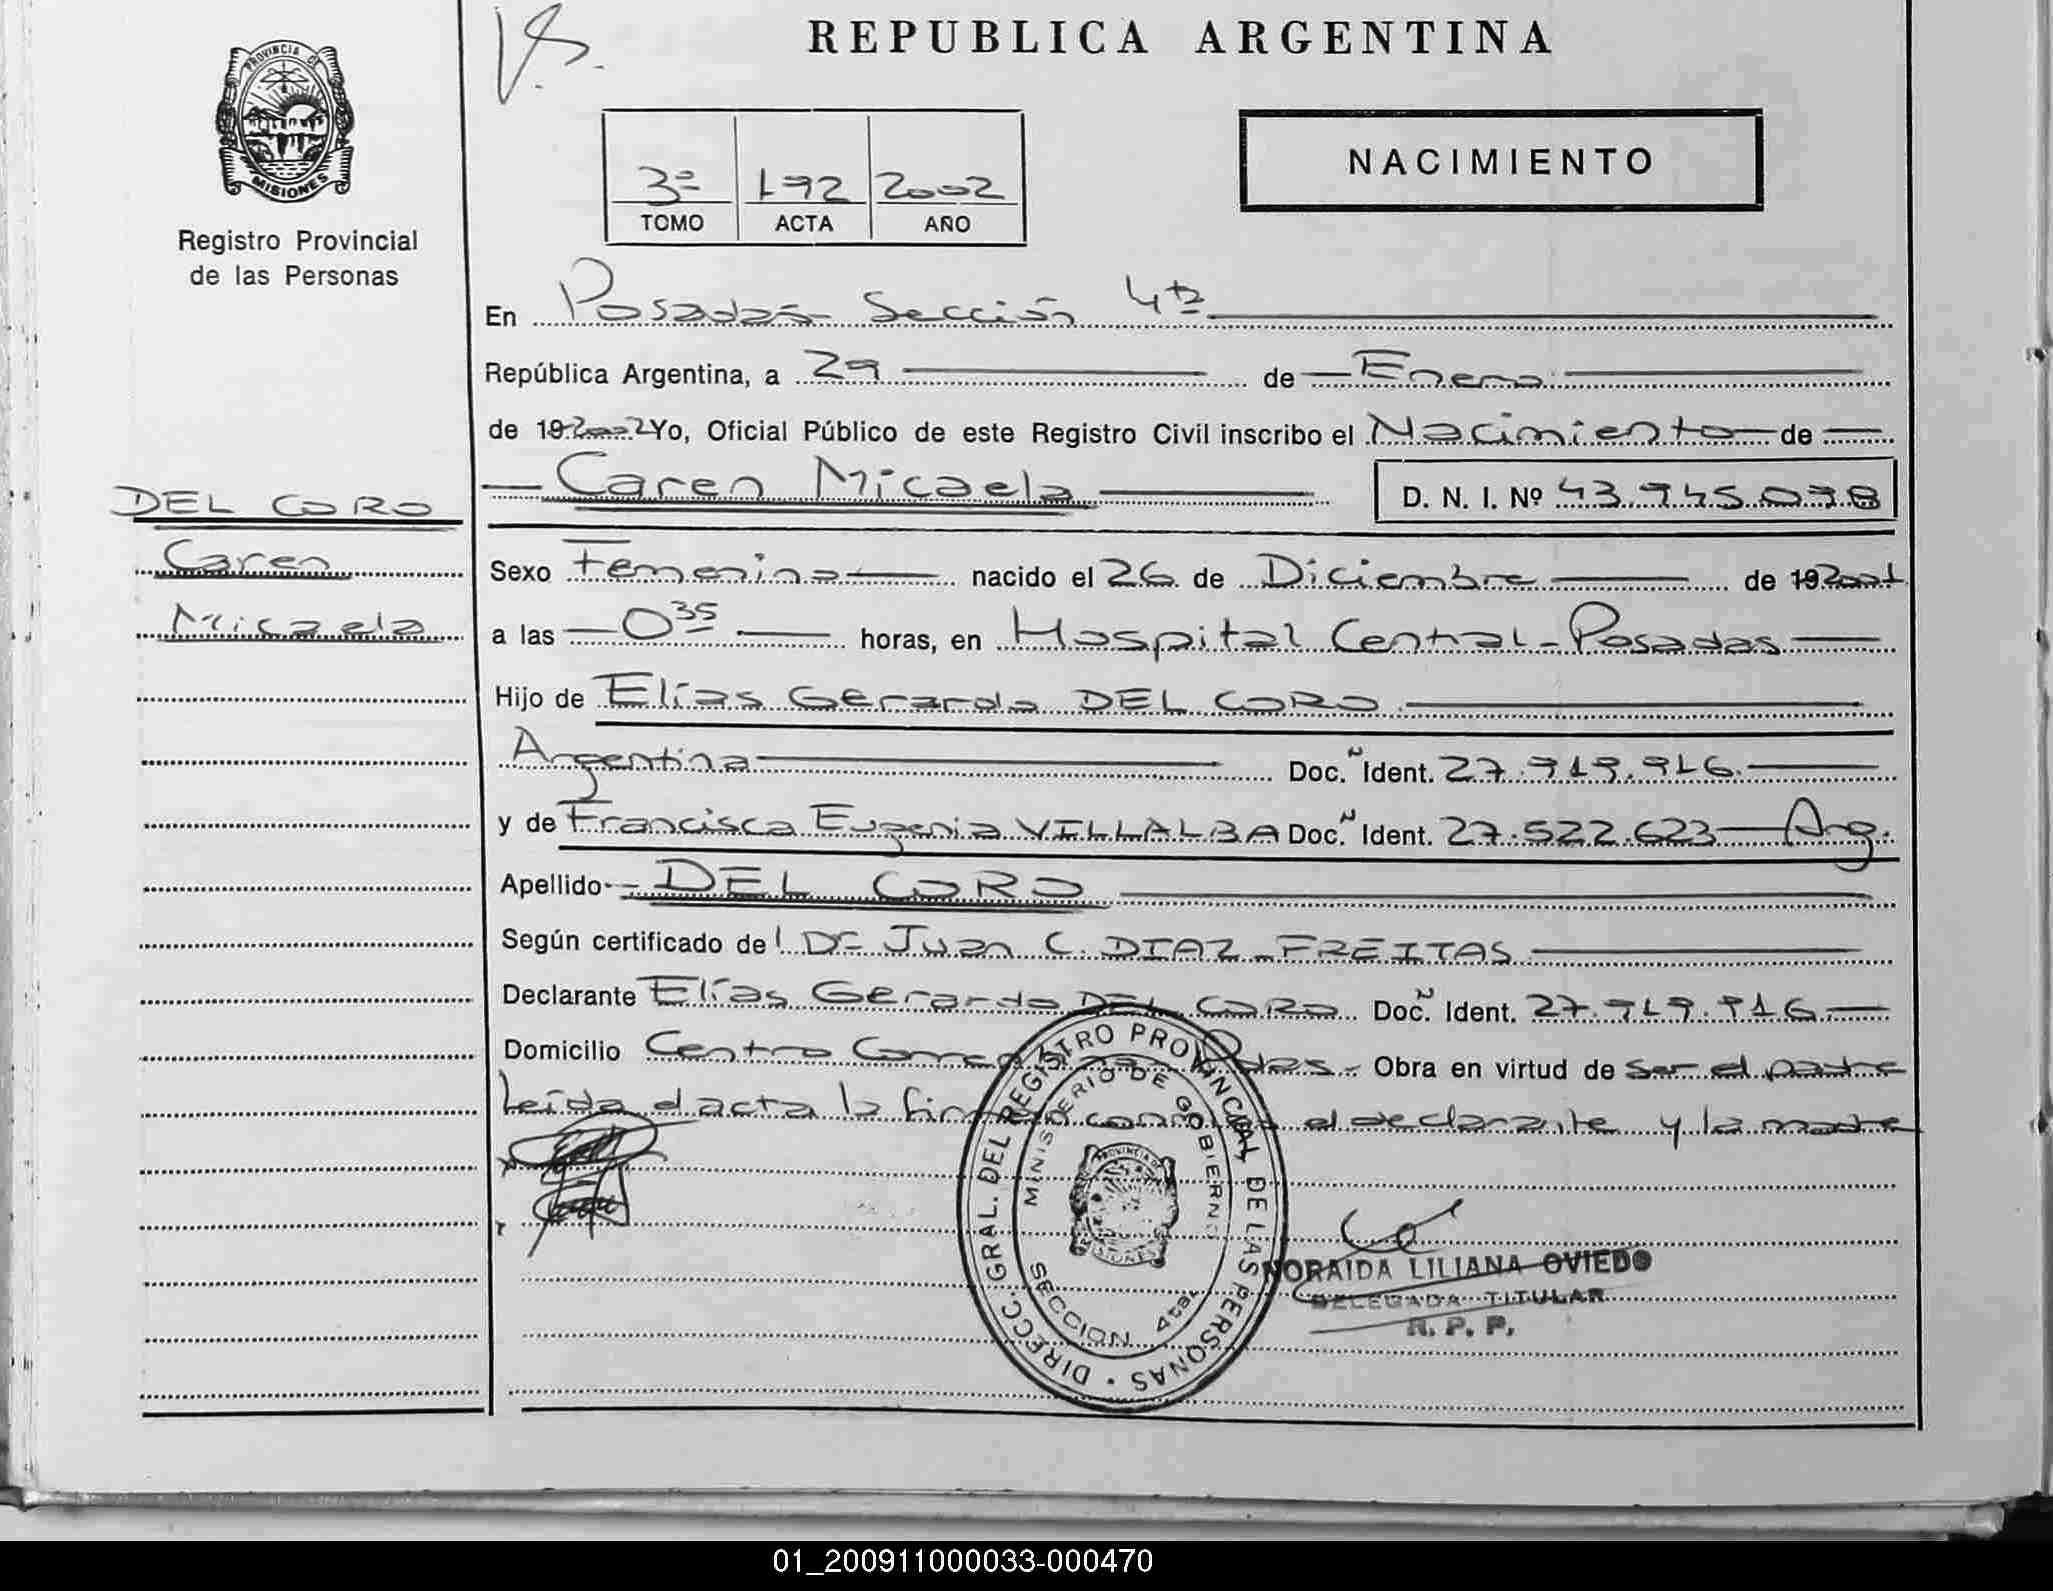 V.S.
REPUBLICA ARGENTINA
PROVINCIA DE
MISIONES
Registro Provincial
de las Personas
3º 192 2002
TOMO ACTA AÑO
NACIMIENTO
En Posadas Sección 4ta
República Argentina, a 29 de Enero
de 192002 Yo, Oficial Público de este Registro Civil inscribo el Nacimiento de
Caren Micaela D. N. I. Nº 43.945.078
DEL CORO
Caren
Micaela
Sexo Femenino nacido el 26 de Diciembre de 192001
a las 0 35 horas, en Hospital Central - Posadas
Hijo de Elías Gerardo DEL CORO
Argentina Doc. Ident. 27.919.916.
y de Francisca Eugenia VILLALBA Doc. Ident. 27.522.623 Arg.
Apellido DEL CORO
Según certificado de Dr Juan C. DIAZ - FREITAS
Declarante Elías Gerardo DEL CORO Doc. Ident. 27.919.916
Domicilio Centro Obra en virtud de ser el padre
Leída el acta la el declarante y la madre
DIRECC. GRAL. DEL REGISTRO PROVINCIAL DE LAS PERSONAS
MINISTERIO DE GOBIERNO
PROVINCIA DE
MISIONES
SECCION 4ta.
NORAIDA LILIANA OVIEDO
DELEGADA TITULAR
R. P. P.
01_200911000033-000470